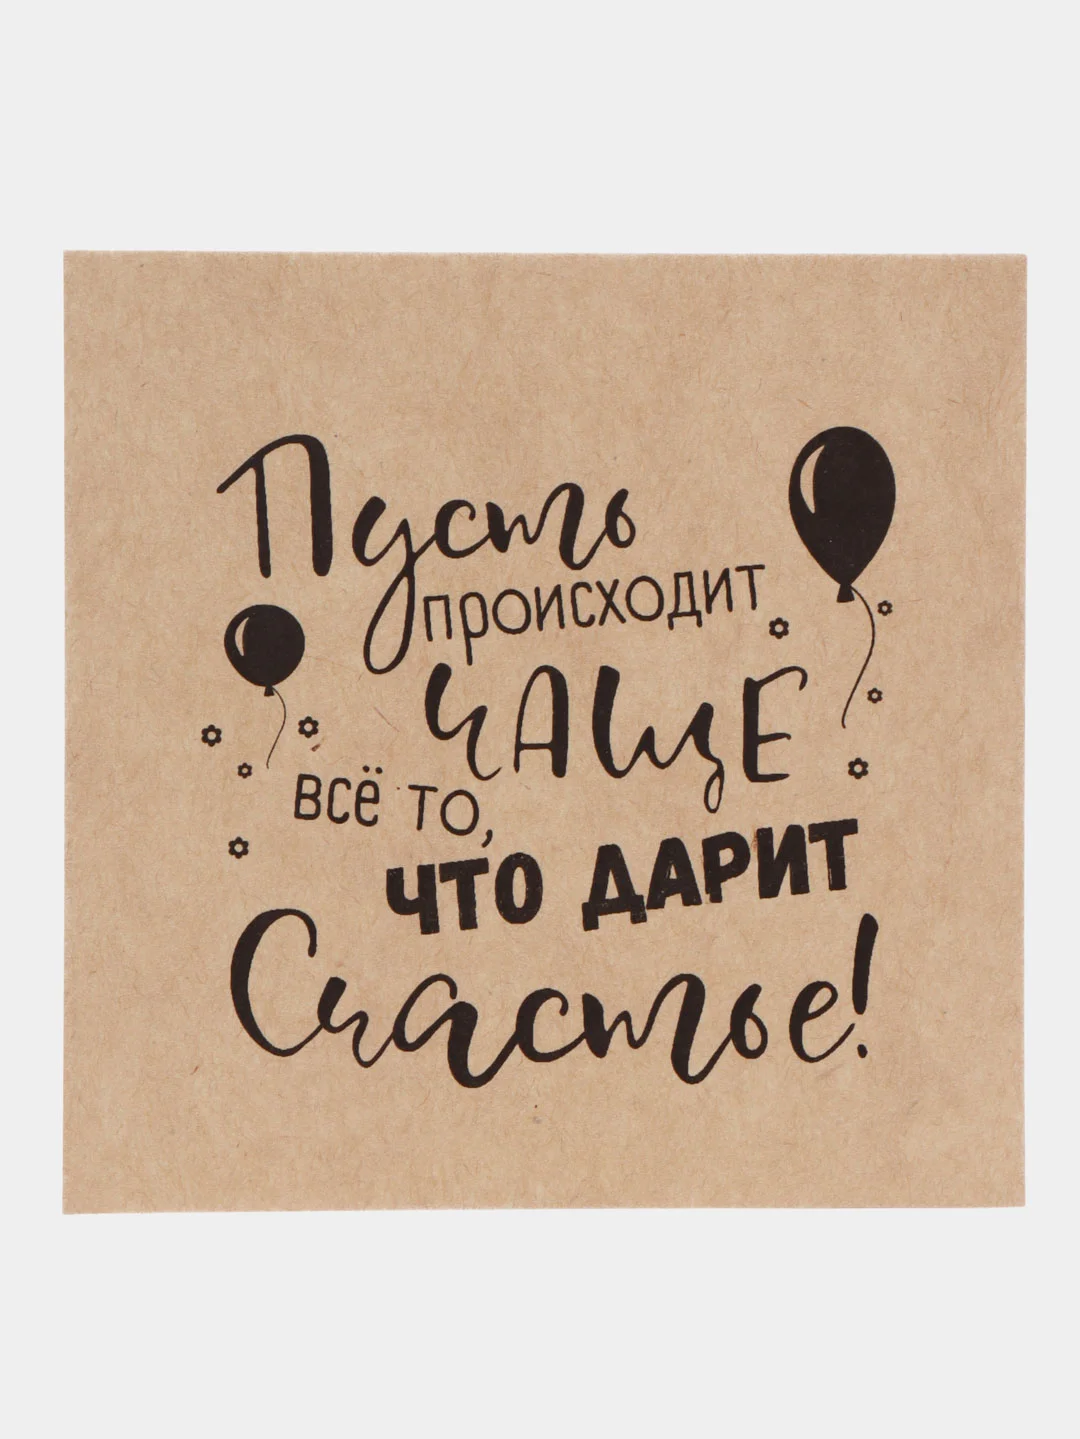 Пусть
происходит
чАщЕ
всё то,
что дарит
Счастье!